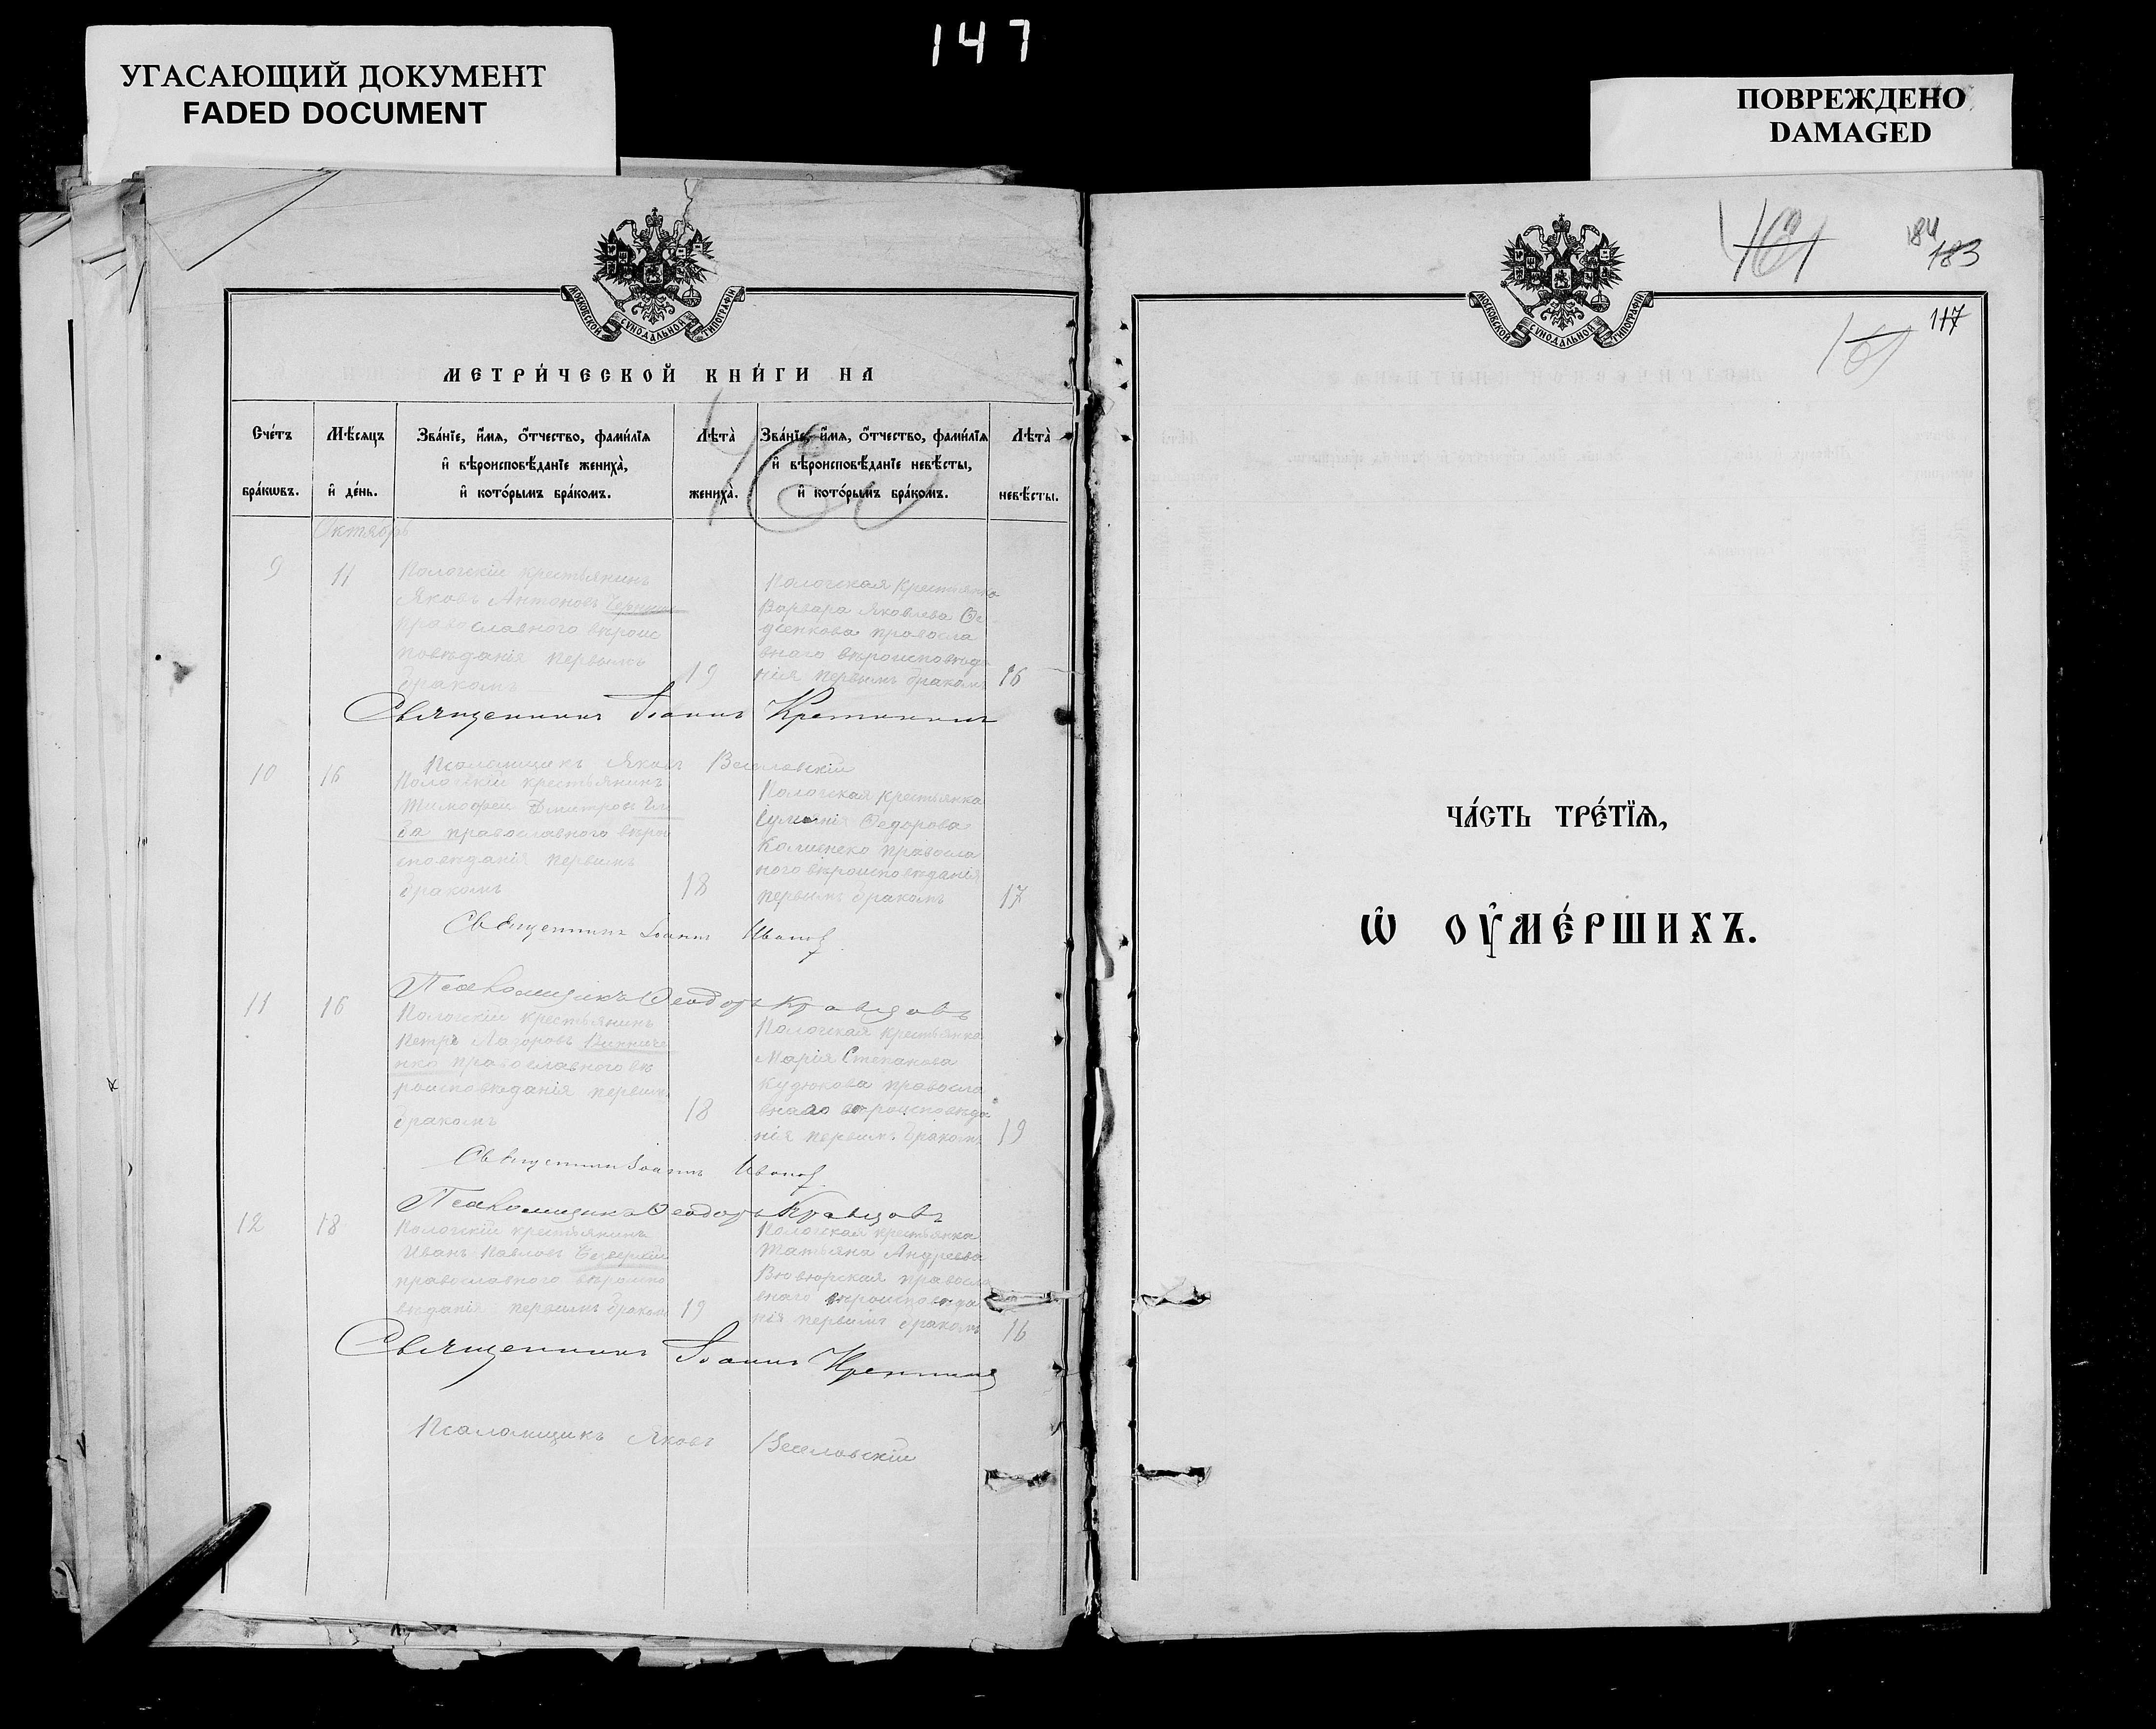 147
УГАСАЮЩИЙ ДОКУМЕНТ
FADED DOCUMENT
ПОВРЕЖДЕНО
DAMAGED
МОСКОВСКОЙ СУНОДАЛЬНОЙ ТИПОГРАФІИ
МЕТРИ́ЧЕСКОЙ КНИ́ГИ НА
Сче́тъ бра́кѡвъ.
Мѣ́сяцъ и де́нь.
Зва́нїе, и́мѧ, ѻ́тчество, фами́лїѧ и вѣроисповѣ́данїе жениха̀, и кото́рымъ бра́комъ.
Лѣта̀ жениха̀.
Зва́нїе, и́мѧ, ѻ́тчество, фами́лїѧ и вѣроисповѣ́данїе невѣ́сты, и кото́рымъ бра́комъ.
Лѣта̀ невѣ́сты.
Октябрь
9
11
Пологскій крестьянинъ
Яковъ Антоновъ
православного вѣроис
повѣданія первымъ
бракомъ
19
Пологская крестьянка
Варвара Яковлева Ѳе
дченкова правосла
внаго вѣроисповѣда
нія первымъ бракомъ
16
Священникъ Іоаннъ
Псаломщикъ Яковъ Веселовскій
10
16
Пологскій крестьянинъ
Тимофей Дмитровъ
ба православного вѣрои
сповѣданія первымъ
бракомъ
18
Пологская крестьянка
Ѳедорова
правосла
ного вѣроисповѣданія
первымъ бракомъ
17
Священникъ Іоаннъ Ивановъ
Псаломщикъ Ѳеодоръ Кравцовъ
11
16
Пологскій крестьянинъ
Петръ Лазоровъ Винниче
нко православного вѣ
роисповѣданія первымъ
бракомъ
18
Пологская крестьянка
Марія Степанова
Кудюкова правосла
внаго вѣроисповѣда
нія первымъ бракомъ
19
Священникъ Іоаннъ Ивановъ
Псаломщикъ Ѳеодоръ Кравцовъ
12
18
Пологскій крестьянинъ
Иванъ Павловъ Безверхій
православного вѣроиспо
вѣданія первымъ бракомъ
19
Пологская крестьянка
Татьяна Андреева
правосла
внаго вѣроисповѣда
нія первымъ бракомъ
16
Священникъ Іоаннъ
Псаломщикъ Яковъ Веселовскій
МОСКОВСКОЙ СУНОДАЛЬНОЙ ТИПОГРАФІИ
184
183
117
ЧА́СТЬ ТРЕ́ТЇѦ,
Ѡ҆ ОУ҆МЕ́РШИХЪ.